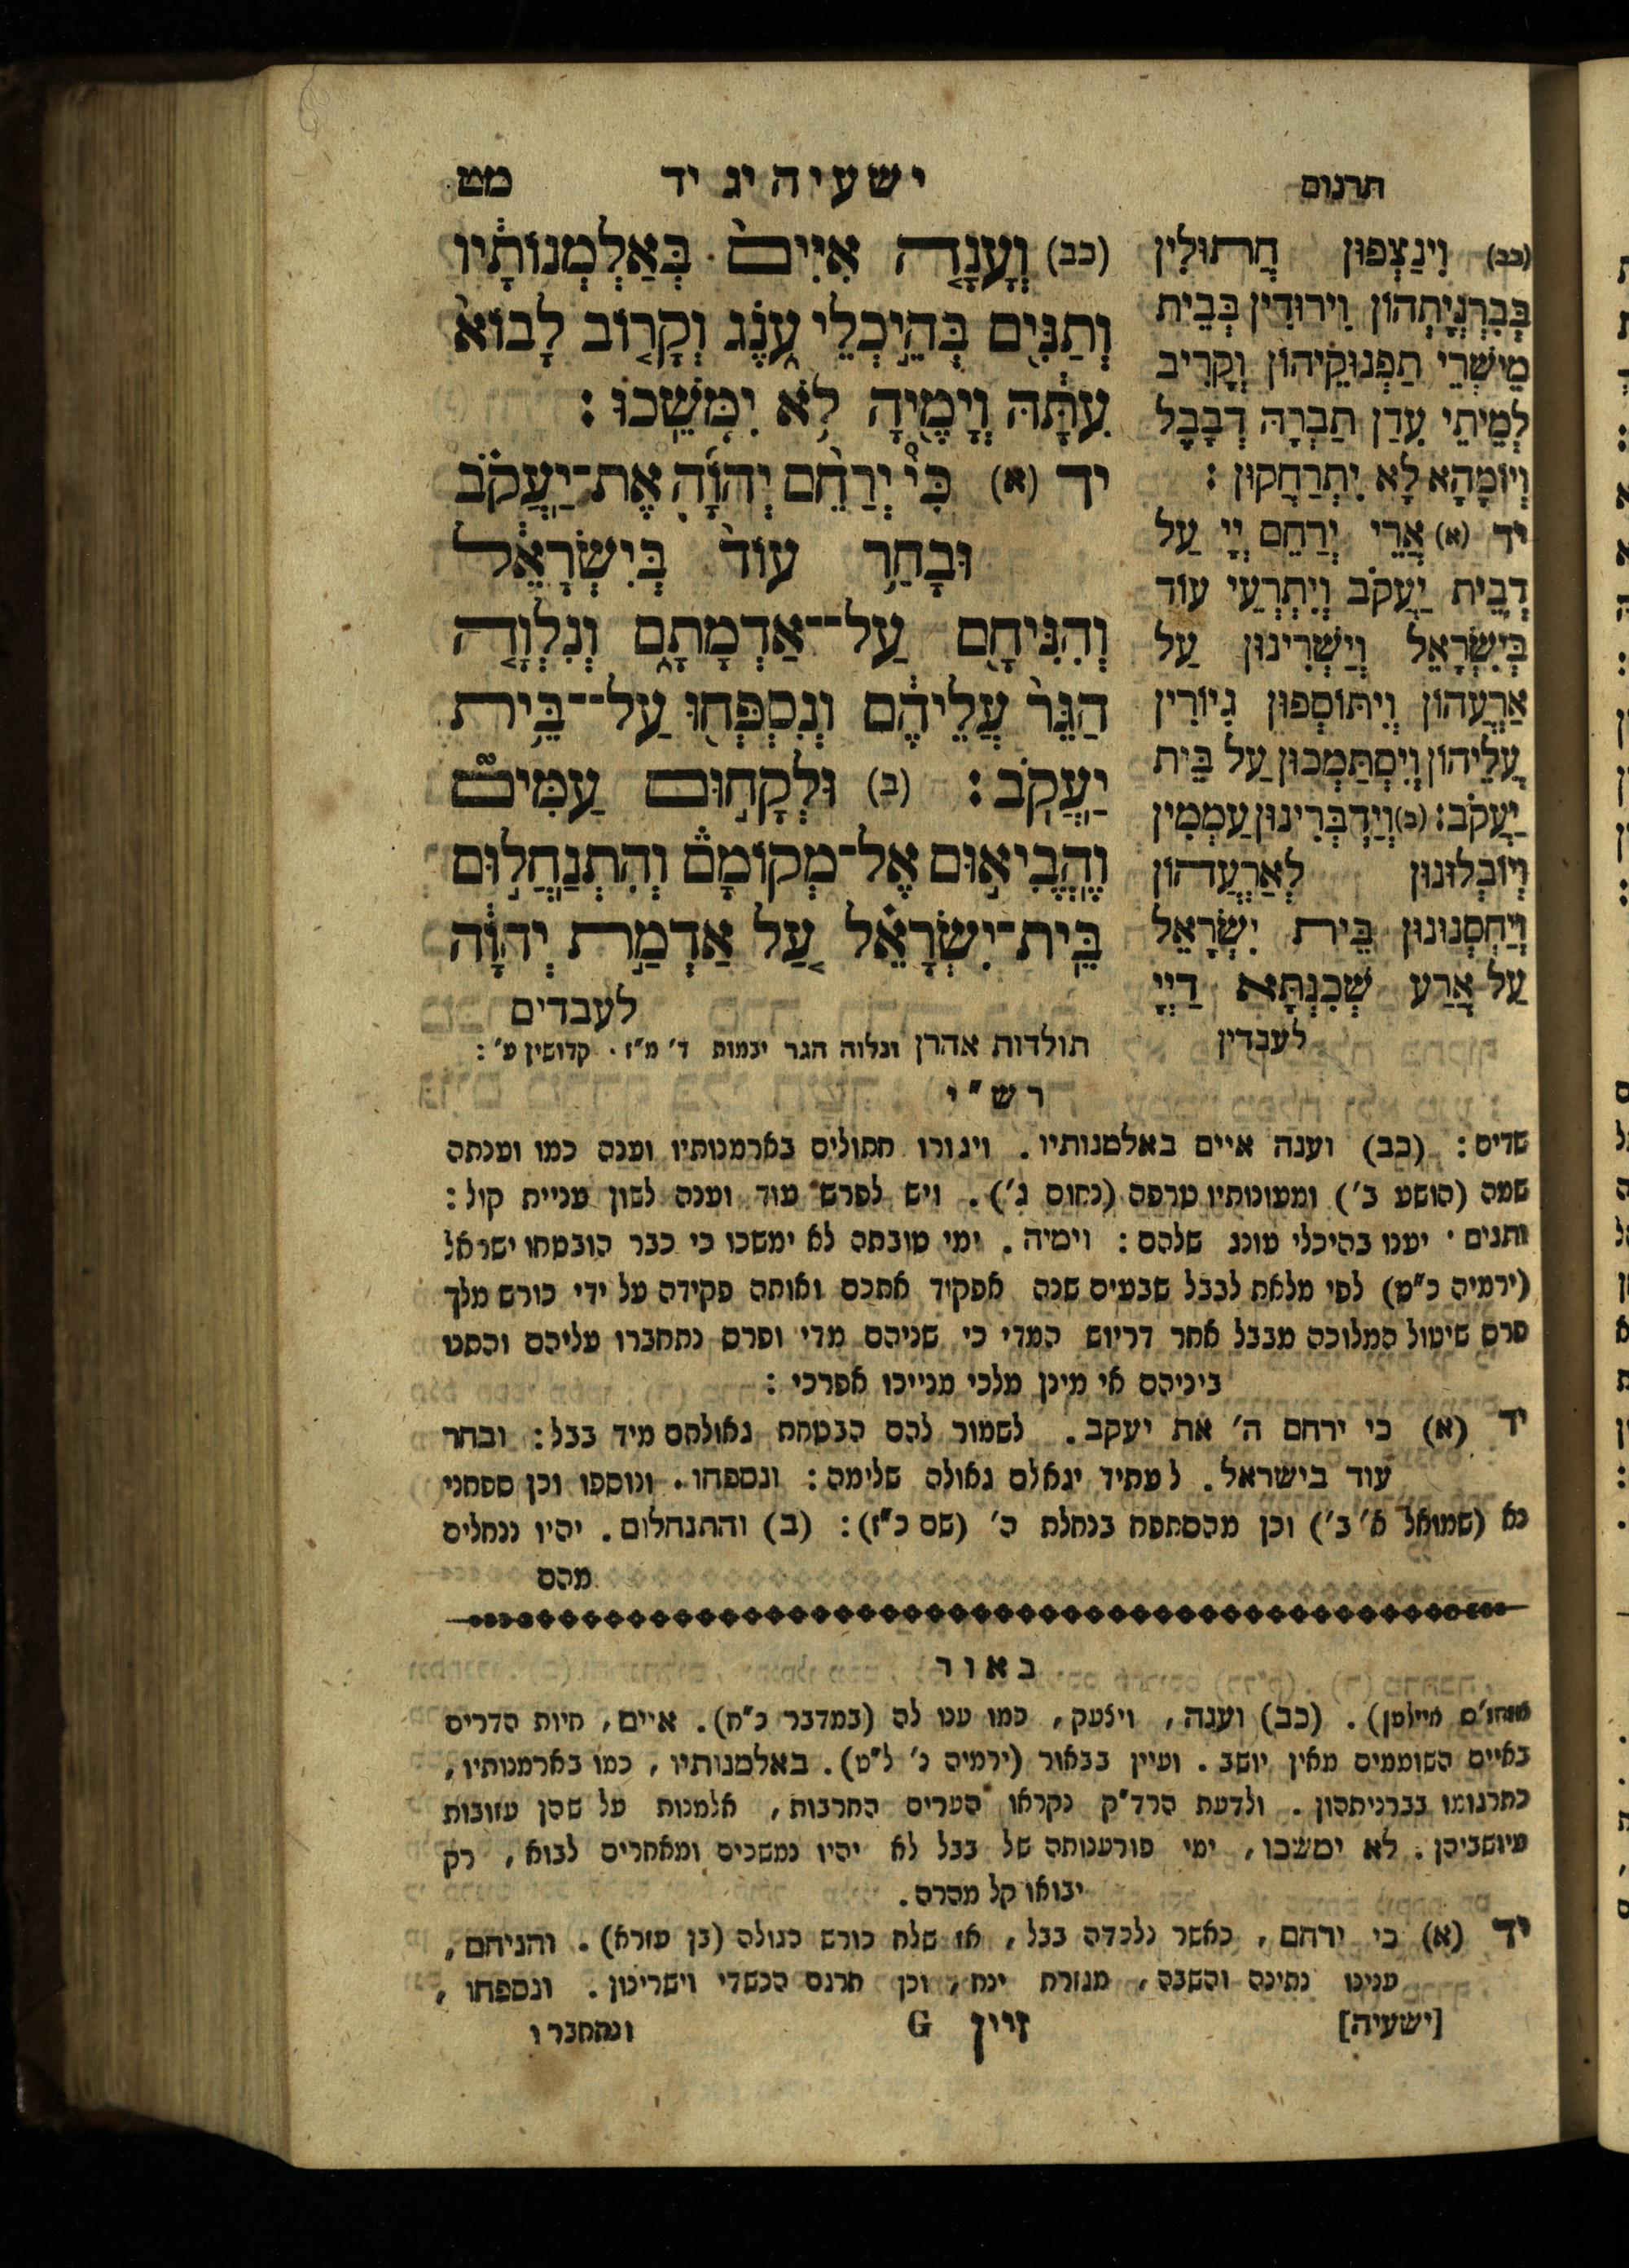 תרגום
ישעיה יג יד
מט
(כב) וְעָנָ֤ה אִיִּים֙ בְּאַלְמְנוֹתָ֔יו
וְתַנִּ֖ים בְּהֵ֣יכְלֵי עֹ֑נֶג וְקָר֤וֹב לָבוֹא֙
עִתָּ֔הּ וְיָמֶ֖יהָ לֹ֥א יִמָּשֵֽׁכוּ׃
יד (א) כִּי֩ יְרַחֵ֨ם יְהוָֹ֜ה אֶת־יַֽעֲקֹ֗ב
וּבָחַ֥ר עוֹד֙ בְּיִשְׂרָאֵ֔ל
וְהִנִּיחָ֖ם עַל־־אַדְמָתָ֑ם וְנִלְוָ֤ה
הַגֵּר֙ עֲלֵיהֶ֔ם וְנִסְפְּח֖וּ עַל־־בֵּ֥ית
יַֽעֲקֹֽב׃ (ב) וּלְקָח֣וּם עַמִּים֮
וֶֽהֱבִיא֣וּם אֶל־מְקוֹמָם֒ וְהִתְנַֽחֲל֣וּם
בֵּֽית־יִשְׂרָאֵ֗ל עַ֚ל אַדְמַ֣ת יְהוָֹ֔ה
לעבדים
(כב) וִינַצְּפוּן חֲתוּלִין
בְּבִרְנְיָתְהוֹן וְיֵרוּדִין בְּבֵית
מֵישְׁרֵי תַפְנוּקֵיהוֹן וְקָרִיב
לְמֵיתֵי עִדַן תַּבְרָהּ דְבָבֶל
וְיוֹמָהָא לָא יִתְרַחֲקוּן׃
יד (א) אֲרֵי יְרַחֵם יְיָ עַל
דְבֵית יַעֲקֹב וְיִתְרְעֵי עוֹד
בְּיִשְׂרָאֵל וְיַשְׁרִינוּן עַל
אַרְעֲהוֹן וְיִתּוֹסְפוּן גִיוֹרִין
עֲלֵיהוֹן וְיִסְתַּמְכוּן עַל בֵּית
יַעֲקֹב׃ (ב) וִידַבְּרִינוּן עַמְמִין
וְיוֹבְלוּנוּן לְאַרְעֲהוֹן
וְיַחְסְנוּנוּן בֵּית יִשְׂרָאֵל
עַל אֲרַע שְׁכִנְתָּא דַיְיָ
לעבדין
תולדות אהרן ונלוה הגר יבמות ד׳ מ״ז. קדושין ע׳:
רש״י
שדים: (כב) וענה איים באלמנותיו. ויגורו חתולים בארמנותיו וענה כמו וענתה
שמה (הושע ב׳) ומעונותיו טרפה (נחום ג׳). ויש לפרש עוד וענה לשון עניית קול:
ותנים. יענו בהיכלי עונג שלהם: וימיה. ימי טובתה לא ימשכו כי כבר הובטחו ישראל
(ירמיה כ״ט) לפי מלאת לבבל שבעים שנה אפקיד אתכם ואותה פקידה על ידי כורש מלך
פרס שיטול המלוכה מבבל אחר דריוש המדי כי שניהם מדי ופרס נתחברו עליהם והתנו
ביניהם אי מינן מלכי מנייכו אפרכי:
יד (א) כי ירחם ה׳ את יעקב. לשמור להם הבטחת גאולתם מיד בבל: ובחר
עוד בישראל. לעתיד יגאלם גאולה שלימה: ונספחו. ונוספו וכן ספחני
נא (שמואל א׳ ב׳) וכן מהסתפח בנחלת ה׳ (שם כ״ו): (ב) והתנחלום. יהיו ננחלים
מהם
באור
(כב) וענה, ויצעק, כמו ענו לה (במדבר כ״ח). איים, חיות הדרים
באיים השוממים מאין יושב. ועיין בבאור (ירמיה נ׳ ל״ט). באלמנותיו, כמו בארמנותיו,
כתרגומו בברניתהון. ולדעת הרד״ק נקראו הערים החרבות, אלמנות על שהן עזובות
מיושביהן. לא ימשכו, ימי פורענותה של בבל לא יהיו נמשכים ומאחרים לבוא, רק
יבואו קל מהרה.
יד (א) כי ירחם, כאשר נלכדה בבל, אז שלח כורש הגולה (בן עזרא). והניחם,
ענינו נתינה והשבה, מגזרת ינח, וכן תרגם הכשדי וישרינון. ונספחו,
[ישעיה]
זיין G
ונתחברו